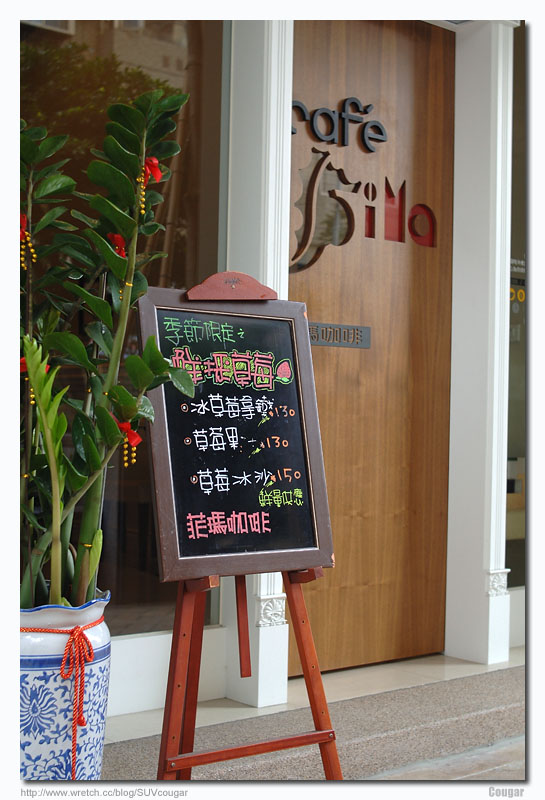 café
Bi Ma
瑪咖啡
季節限定之
鮮現草莓
冰草莓拿鐵 130
草莓果汁 130
草莓冰沙 150
鮮量供應
菲瑪咖啡
http://www.wretch.cc/blog/SUVcougar
Cougar